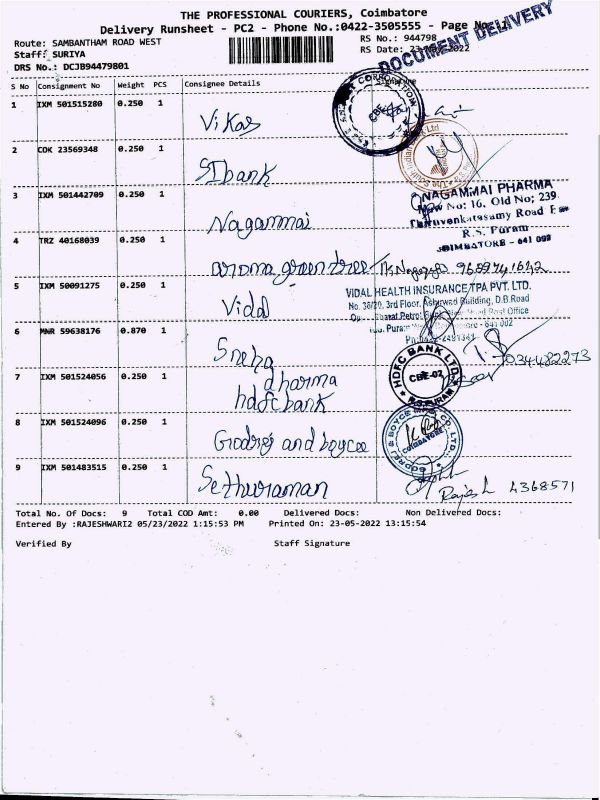 THE PROFESSIONAL COURIERS, Coimbatore
Delivery Runsheet - PC2 - Phone No.:0422-3505555 - Page No.:1
Route: SAMBANTHAM ROAD WEST
RS No.: 944798
Staff: SURIYA
RS Date: 23-05-2022
DRS No.: DCJB94479801
DOCUMENT DELIVERY
S No Consignment No Weight PCS Consignee Details Signature
1 IXM 501515280 0.250 1 Vikas
2 COK 23569348 0.250 1 SIbank
3 IXM 501442709 0.250 1 Nagammai
NAGAMMAI PHARMA
New No: 16, Old No; 239,
Thiruvenkatasamy Road
R.S. Puram
COIMBATORE - 641 002
4 TRZ 40168039 0.250 1 aroma green tree
5 IXM 50091275 0.250 1 Vidal
VIDAL HEALTH INSURANCE TPA PVT. LTD.
No. 38/20, 3rd Floor, Ashirwad Building, D.B.Road
6 MNR 59638176 0.870 1 Sneha
7 IXM 501524056 0.250 1 dharma
hdfc bank
HDFC BANK LTD.
CBE-02
R.S.PURAM
8 IXM 501524096 0.250 1 Godrej and boyce
GODREJ & BOYCE
COIMBATORE
9 IXM 501483515 0.250 1 Sethuraman
Rajesh 4368571
Total No. Of Docs: 9 Total COD Amt: 0.00 Delivered Docs: Non Delivered Docs:
Entered By :RAJESHWARI2 05/23/2022 1:15:53 PM Printed On: 23-05-2022 13:15:54
Verified By Staff Signature